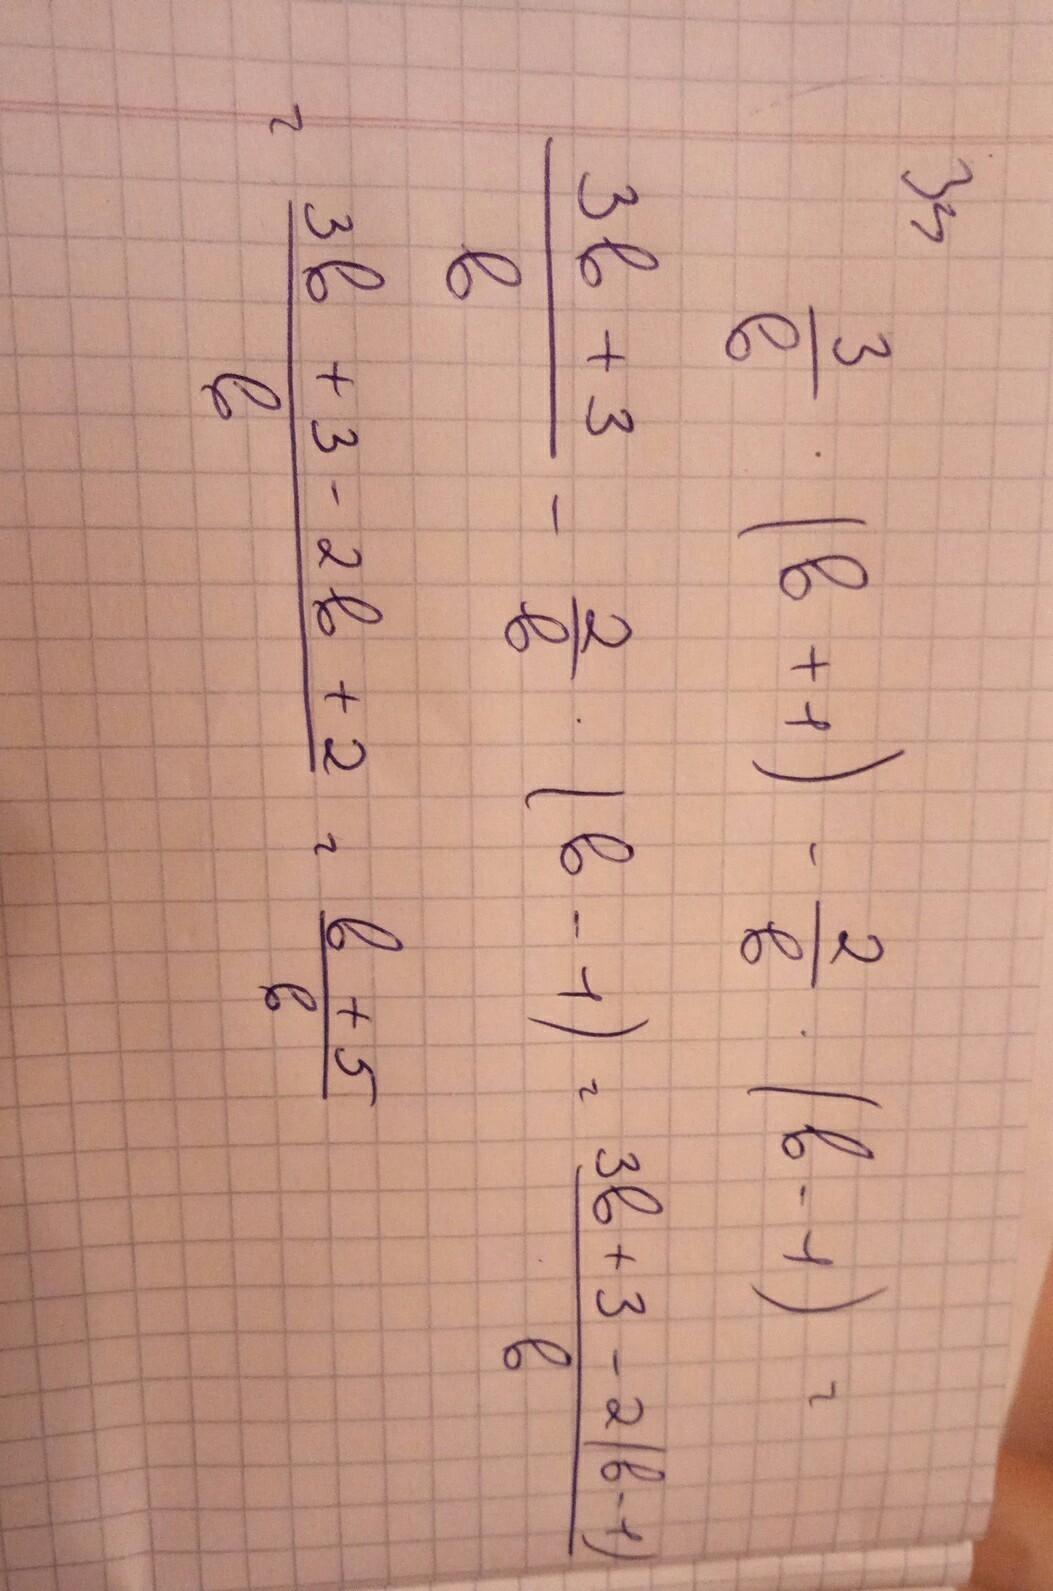 34
3/b · (b + 1) - 2/b · (b - 1) =
(3b + 3)/b - 2/b · (b - 1) = (3b + 3 - 2(b - 1))/b
= (3b + 3 - 2b + 2)/b = (b + 5)/b